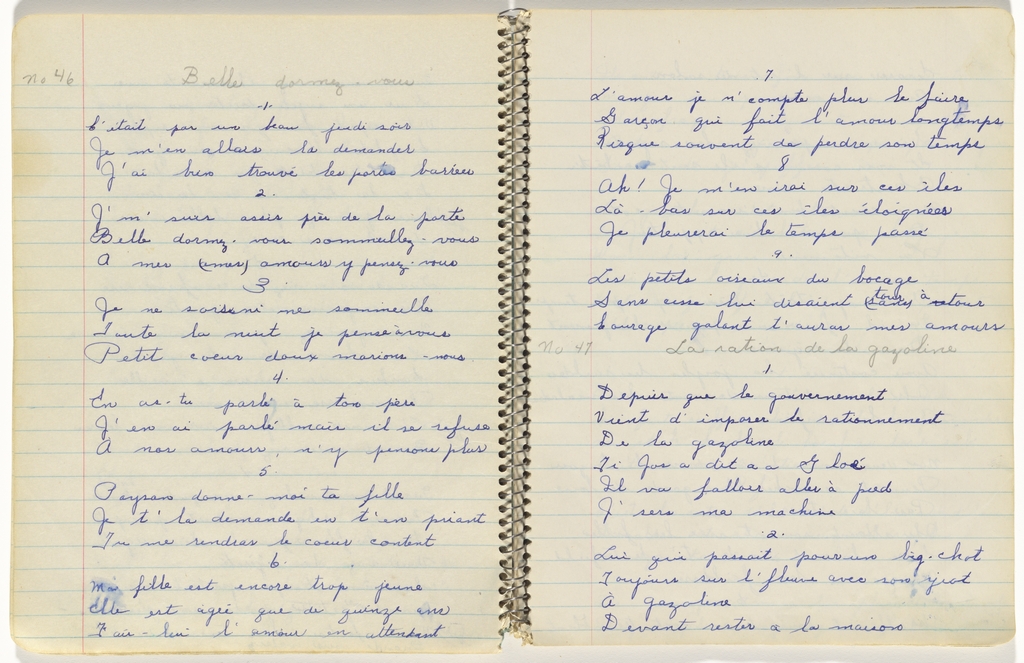 No 46 Belle dormez-vous
-1-
C'était par un beau jeudi soir
Je m'en allais la demander
J'ai bien trouvé les portes barrées
2.
J'm'suis assis près de la porte
Belle dormez-vous sommeillez-vous
A mes (âmes) amours y pensez-vous
3.
Je ne dors ni ne sommeille
Toute la nuit je pense à vous
Petit coeur doux marions-nous
4.
En as-tu parlé à ton père
J'en ai parlé mais il se refuse
A nos amours, n'y pensons plus
5.
Paysan donne-moi ta fille
Je t'la demande en t'en priant
Tu me rendras le coeur content
6.
Ma fille est encore trop jeune
Elle est agée que de quinze ans
Fais-lui l'amour en attendant
7.
L'amour je n'compte plus le faire
Garçon qui fait l'amour longtemps
Risque souvent de perdre son temps
8
Ah! Je m'en irai sur ces îles
Là-bas sur ces îles éloignées
Je pleurerai le temps passé
.9.
Les petits oiseaux du bocage
Sans cesse lui disaient (sans) tour à tour
Courage galant t'auras mes amours
No 47 La ration de la gazoline
1.
Depuis que le gouvernement
Vient d'imposer le rationnement
De la gazoline
Ti Jos a dit a a
Il va falloir aller à pied
J'sers ma machine
.2.
Lui qui passait pour un big-chot
Toujours sur l'fleuve avec son yiot
À gazoline
Devant rester a la maison